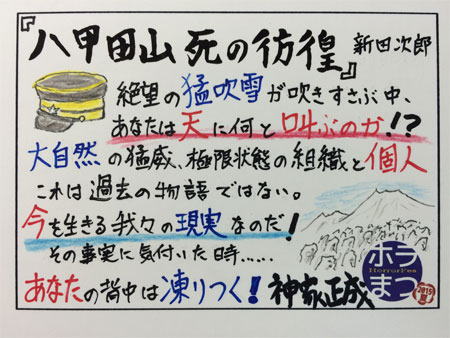 『八甲田山 死の彷徨』 新田次郎
絶望の猛吹雪が吹きすさぶ中、
あなたは天に何と叫ぶのか!?
大自然の猛威、極限状態の組織と個人
これは過去の物語ではない。
今を生きる我々の現実なのだ!
その事実に気付いた時……
あなたの背中は凍りつく! 神家正成
ホラ
HorrorFes
まつ
2015
夏